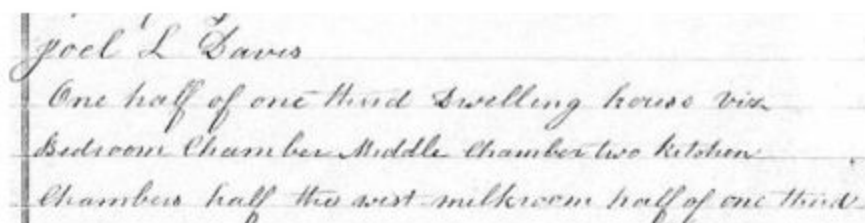 Joel L Davis
One half of one third Dwelling house viz
Bedroom Chamber Middle Chamber two kitchen
Chambers half the west milkroom half of one third